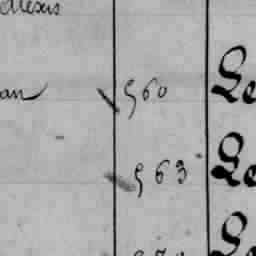 Alexis
an 560 Le
563 Le